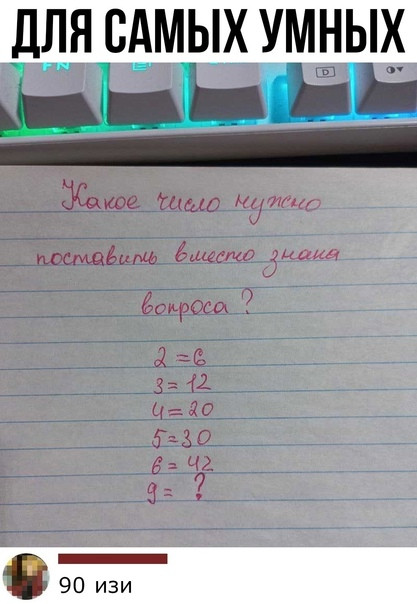 ДЛЯ САМЫХ УМНЫХ
FN
D
Какое число нужно
поставить вместо знака
вопроса ?
2 =6
3= 12
4= 20
5=30
6= 42
9= ?
90 изи